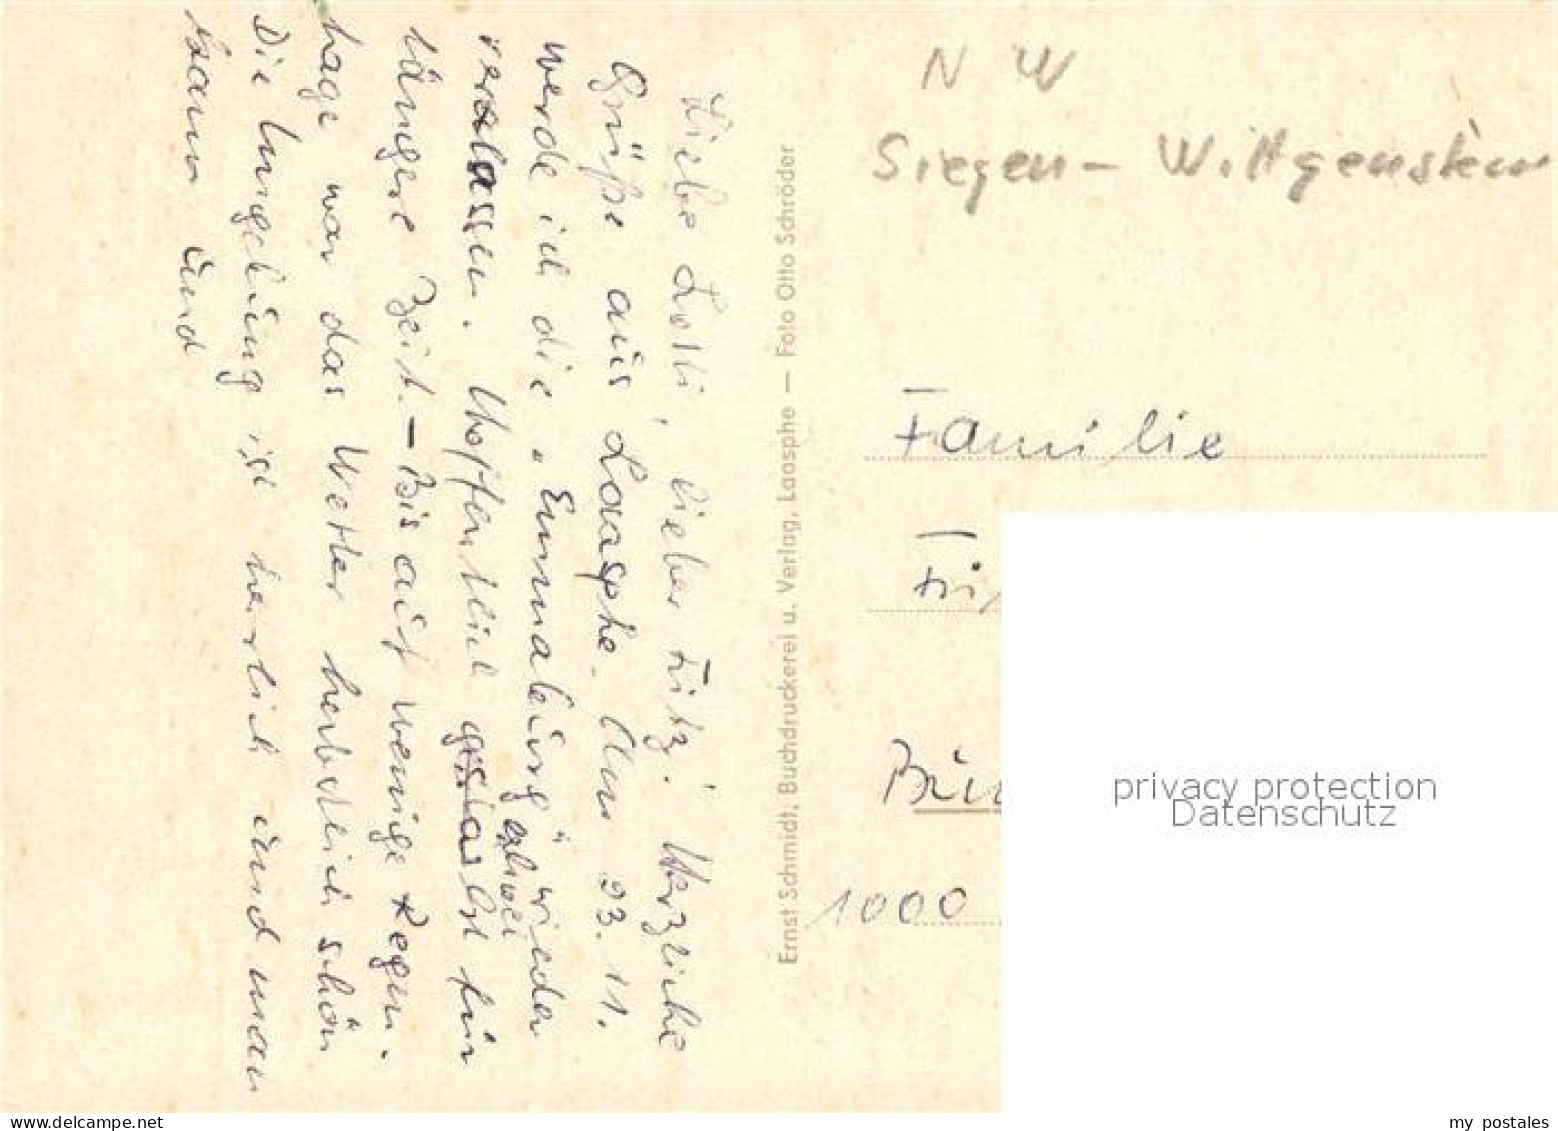 N W
Siegen - Wittgenstein
Liebe Lotti, lieber Fritz! Herzliche
Grüße aus Laasphe. Am 23. 11.
werde ich die „Emmaburg" wieder
verlassen. Hoffentlich
für
längere Zeit. - Bis auf wenige Regen-
tage war das Wetter herbstlich schön
Die Umgebung ist herrlich und man
kann und
Ernst Schmidt, Buchdruckerei u. Verlag, Laasphe — Foto Otto Schröder
Familie
1000
privacy protection
Datenschutz
www.delcampe.net
my_postales